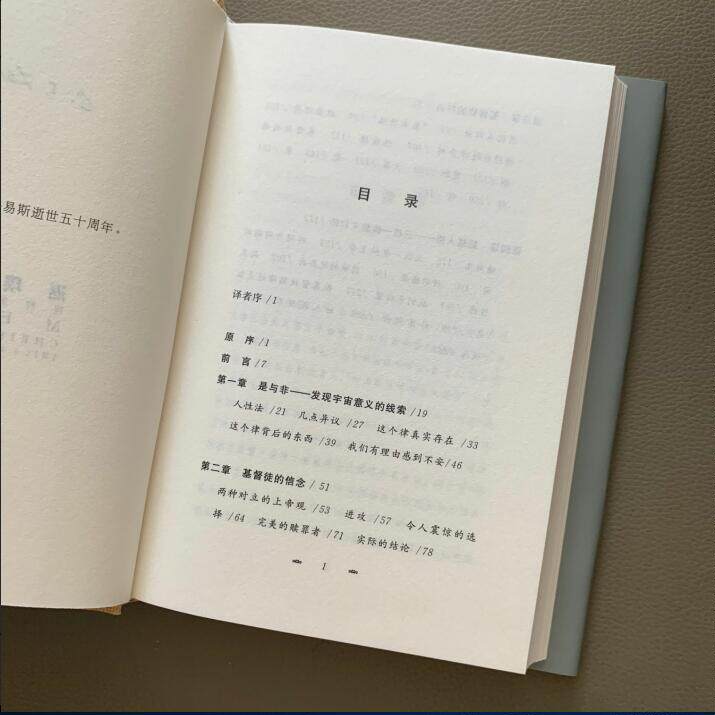 易斯逝世五十周年。
目 录
译者序 /1
原 序 /1
前 言 /7
第一章 是与非——发现宇宙意义的线索 /19
人性法 /21 几点异议 /27 这个律真实存在 /33
这个律背后的东西 /39 我们有理由感到不安 /46
第二章 基督徒的信念 /51
两种对立的上帝观 /53 进攻 /57 令人震惊的选
择 /64 完美的赎罪者 /71 实际的结论 /78
1